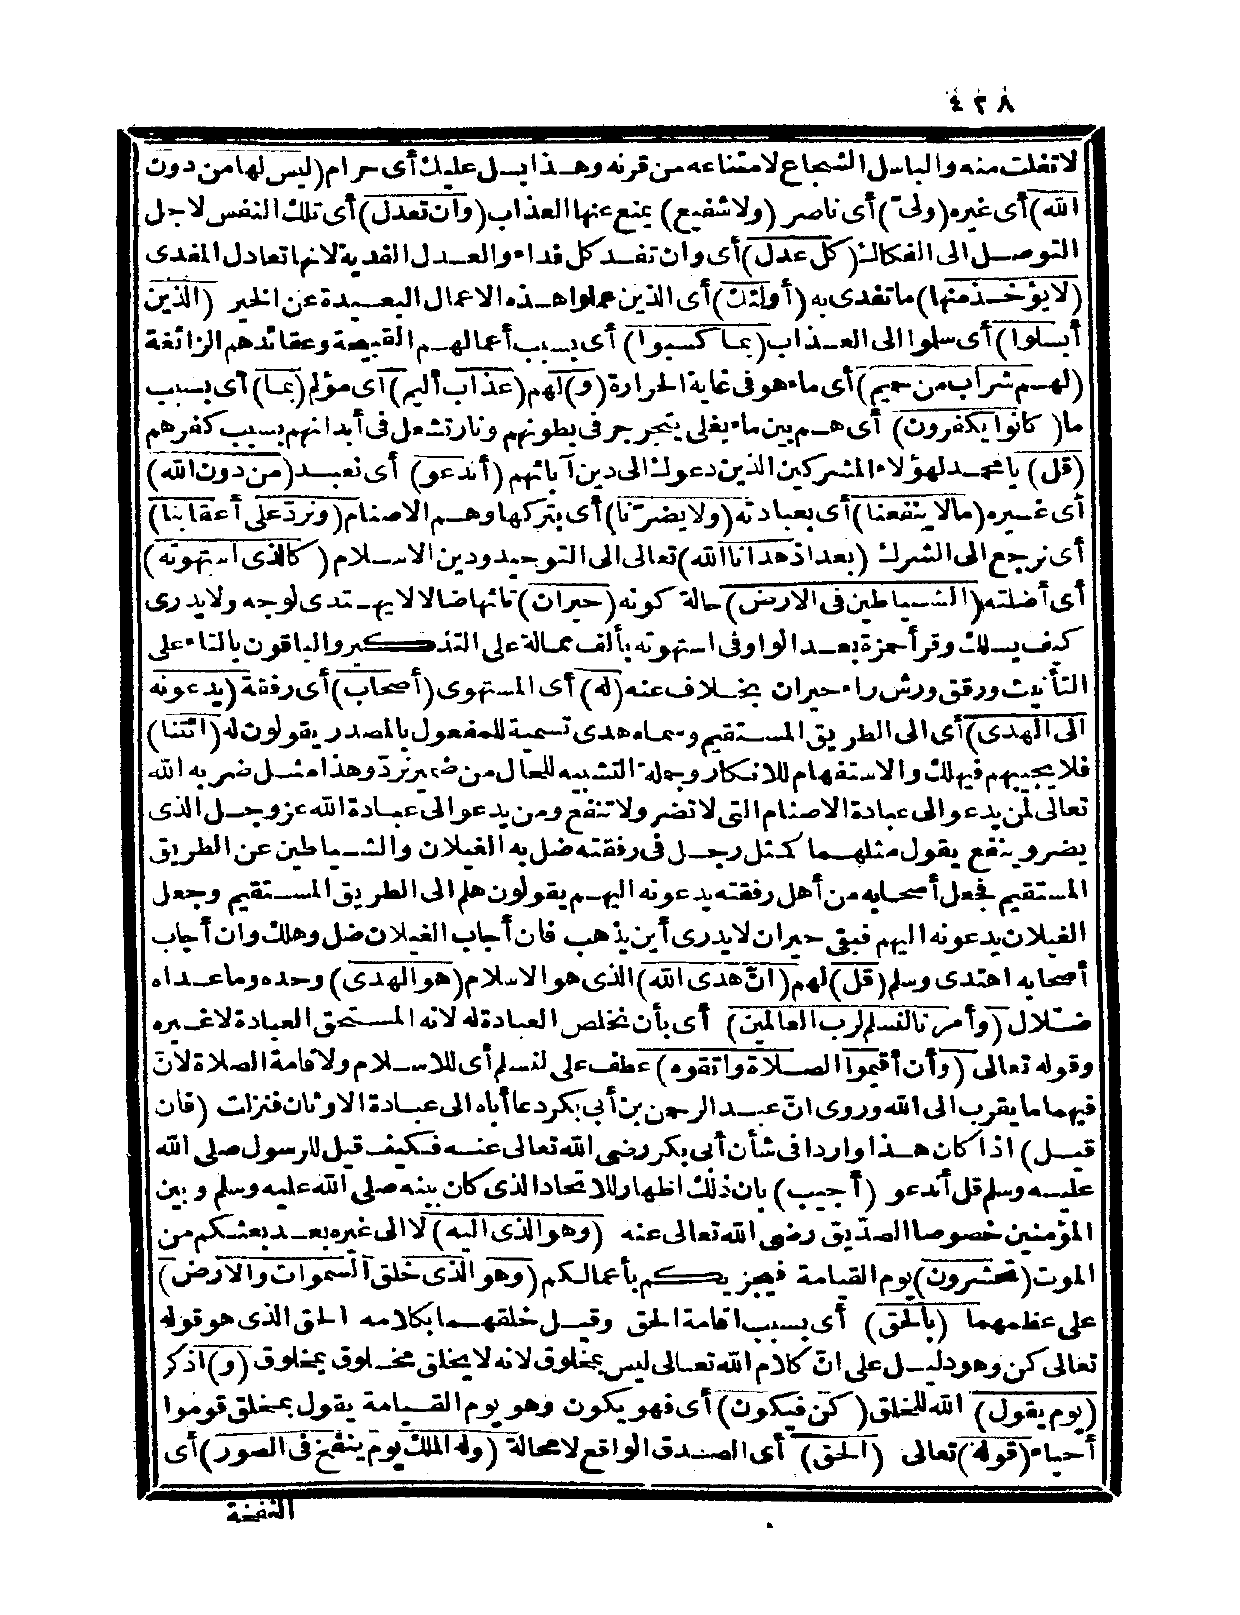 ٤٢٨
لا تفلت منه والباسل الشجاع لامتناعه من قرنه وهذا بسل عليك أى حرام (ليس لها من دون
الله) أى غيره (ولىّ) أى ناصر (ولا شفيع) يمنع عنها العذاب (وان تعدل) أى تلك النفس لاجل
التوصل الى الفكاك (كل عدل) أى وان تفد كل فداء والعدل الفدية لانها تعادل المفدى
(لا يؤخذ منها) ما تفدى به (أولئك) أى الذين عملوا هذه الاعمال البعيدة عن الخير (الذين
أبسلوا) أى سلوا الى العذاب (بما كسبوا) أى بسبب أعمالهم القبيحة وعقائدهم الزائغة
(لهم شراب من حميم) أى ماء هو فى غاية الحرارة (و) لهم (عذاب أليم) أى مؤلم (بما) أى بسبب
ما (كانوا يكفرون) أى هم بين ماء يغلى يتجرجر فى بطونهم ونار تشعل فى أبدانهم بسبب كفرهم
(قل) يا محمد لهؤلاء المشركين الذين دعوك الى دين آبائهم (أندعو) أى نعبد (من دون الله)
أى غيره (ما لا ينفعنا) أى بعبادته (ولا يضرّنا) أى بتركها وهم الاصنام (ونردّ على أعقابنا)
أى نرجع الى الشرك (بعد اذ هدانا الله) تعالى الى التوحيد ودين الاسلام (كالذى استهوته)
أى أضلته (الشياطين فى الارض) حالة كونه (حيران) تائها ضالا لا يهتدى لوجه ولا يدرى
كيف يسلك وقرأ حمزة بعد الواو فى استهوته بألف ممالة على التذكير والباقون بالتاء على
التأنيث ورقق ورش راء حيران بخلاف عنه (له) أى المستهوى (أصحاب) أى رفقة (يدعونه
الى الهدى) أى الى الطريق المستقيم وسماه هدى تسمية للمفعول بالمصدر يقولون له (ائتنا)
فلا يجيبهم فيهلك والاستفهام للانكار وجملة التشبيه للحال من ضمير نردّ وهذا مثل ضربه الله
تعالى لمن يدعو الى عبادة الاصنام التى لا تضر ولا تنفع ومن يدعو الى عبادة الله عز وجل الذى
يضر وينفع يقول مثلهما كمثل رجل فى رفقته ضل به الغيلان والشياطين عن الطريق
المستقيم فجعل أصحابه من أهل رفقته يدعونه اليهم يقولون هلم الى الطريق المستقيم وجعل
الغيلان يدعونه اليهم فبقى حيران لا يدرى أين يذهب فان أجاب الغيلان ضل وهلك وان أجاب
أصحابه اهتدى وسلم (قل) لهم (انّ هدى الله) الذى هو الاسلام (هو الهدى) وحده وما عداه
ضلال (وأمرنا لنسلم لرب العالمين) أى بأن نخلص العبادة له لانه المستحق العبادة لا غيره
وقوله تعالى (وأن أقيموا الصلاة واتقوه) عطف على لنسلم أى للاسلام ولاقامة الصلاة لانّ
فيهما ما يقرب الى الله وروى انّ عبد الرحمن بن أبى بكر دعا أباه الى عبادة الاوثان فنزلت (فان
قيل) اذا كان هذا واردا فى شأن أبى بكر رضى الله تعالى عنه فكيف قيل للرسول صلى الله
عليه وسلم قل أندعو (أجيب) بان ذلك اظهار للاتحاد الذى كان بينه صلى الله عليه وسلم وبين
المؤمنين خصوصا الصدّيق رضى الله تعالى عنه (وهو الذى اليه) لا الى غيره بعد بعثكم من
الموت (تحشرون) يوم القيامة فيجزيكم بأعمالكم (وهو الذى خلق السموات والارض)
على عظمهما (بالحق) أى بسبب اقامة الحق وقيل خلقهما بكلامه الحق الذى هو قوله
تعالى كن وهو دليل على انّ كلام الله تعالى ليس بمخلوق لانه لا يخلق مخلوق بمخلوق (و) اذكر
(يوم يقول) الله للخلق (كن فيكون) أى فهو يكون وهو يوم القيامة يقول بمخلق قوموا
أحياء (قوله) تعالى (الحق) أى الصدق الواقع لا محالة (وله الملك يوم ينفخ فى الصور) أى
النفخة